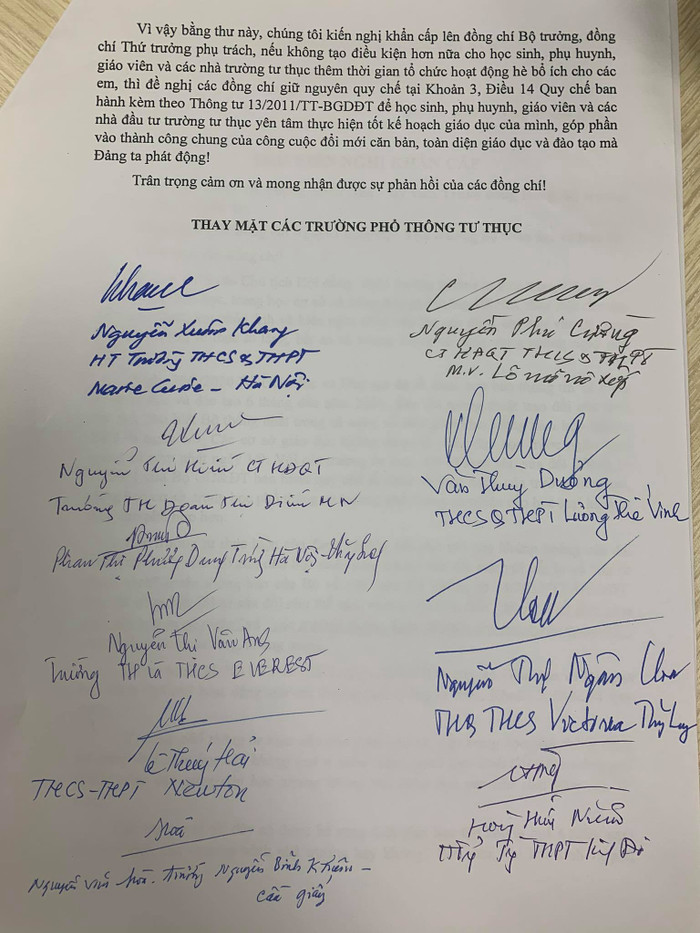 Vì vậy bằng thư này, chúng tôi kiến nghị khẩn cấp lên đồng chí Bộ trưởng, đồng
chí Thứ trưởng phụ trách, nếu không tạo điều kiện hơn nữa cho học sinh, phụ huynh,
giáo viên và các nhà trường tư thục thêm thời gian tổ chức hoạt động hè bổ ích cho các
em, thì đề nghị các đồng chí giữ nguyên quy chế tại Khoản 3, Điều 14 Quy chế ban
hành kèm theo Thông tư 13/2011/TT-BGDĐT để học sinh, phụ huynh, giáo viên và các
nhà đầu tư trường tư thục yên tâm thực hiện tốt kế hoạch giáo dục của mình, góp phần
vào thành công chung của công cuộc đổi mới căn bản, toàn diện giáo dục và đào tạo mà
Đảng ta phát động!
Trân trọng cảm ơn và mong nhận được sự phản hồi của các đồng chí!
THAY MẶT CÁC TRƯỜNG PHỔ THÔNG TƯ THỤC
Nguyễn Xuân Khang
HT Trường THCS & THPT
Marie Curie - Hà Nội
Nguyễn Phú Cường
CT HĐQT THCS & THPT
M.V. Lômônôxốp
Nguyễn Thị Hiền CT HĐQT
Trường TH Đoàn Thị Điểm HN
Văn Thùy Dương
THCS & THPT Lương Thế Vinh
Phan Thị Phương Dung Trường Hà Nội
Nguyễn Thị Vân Anh
Trường TH và THCS EVEREST
Nguyễn Thị Ngân
THCS Victoria Thăng Long
Lê Thúy Hải
THCS-THPT Newton
THPT
Nguyễn Văn Hòa. trường Nguyễn Bỉnh Khiêm -
Cầu giấy